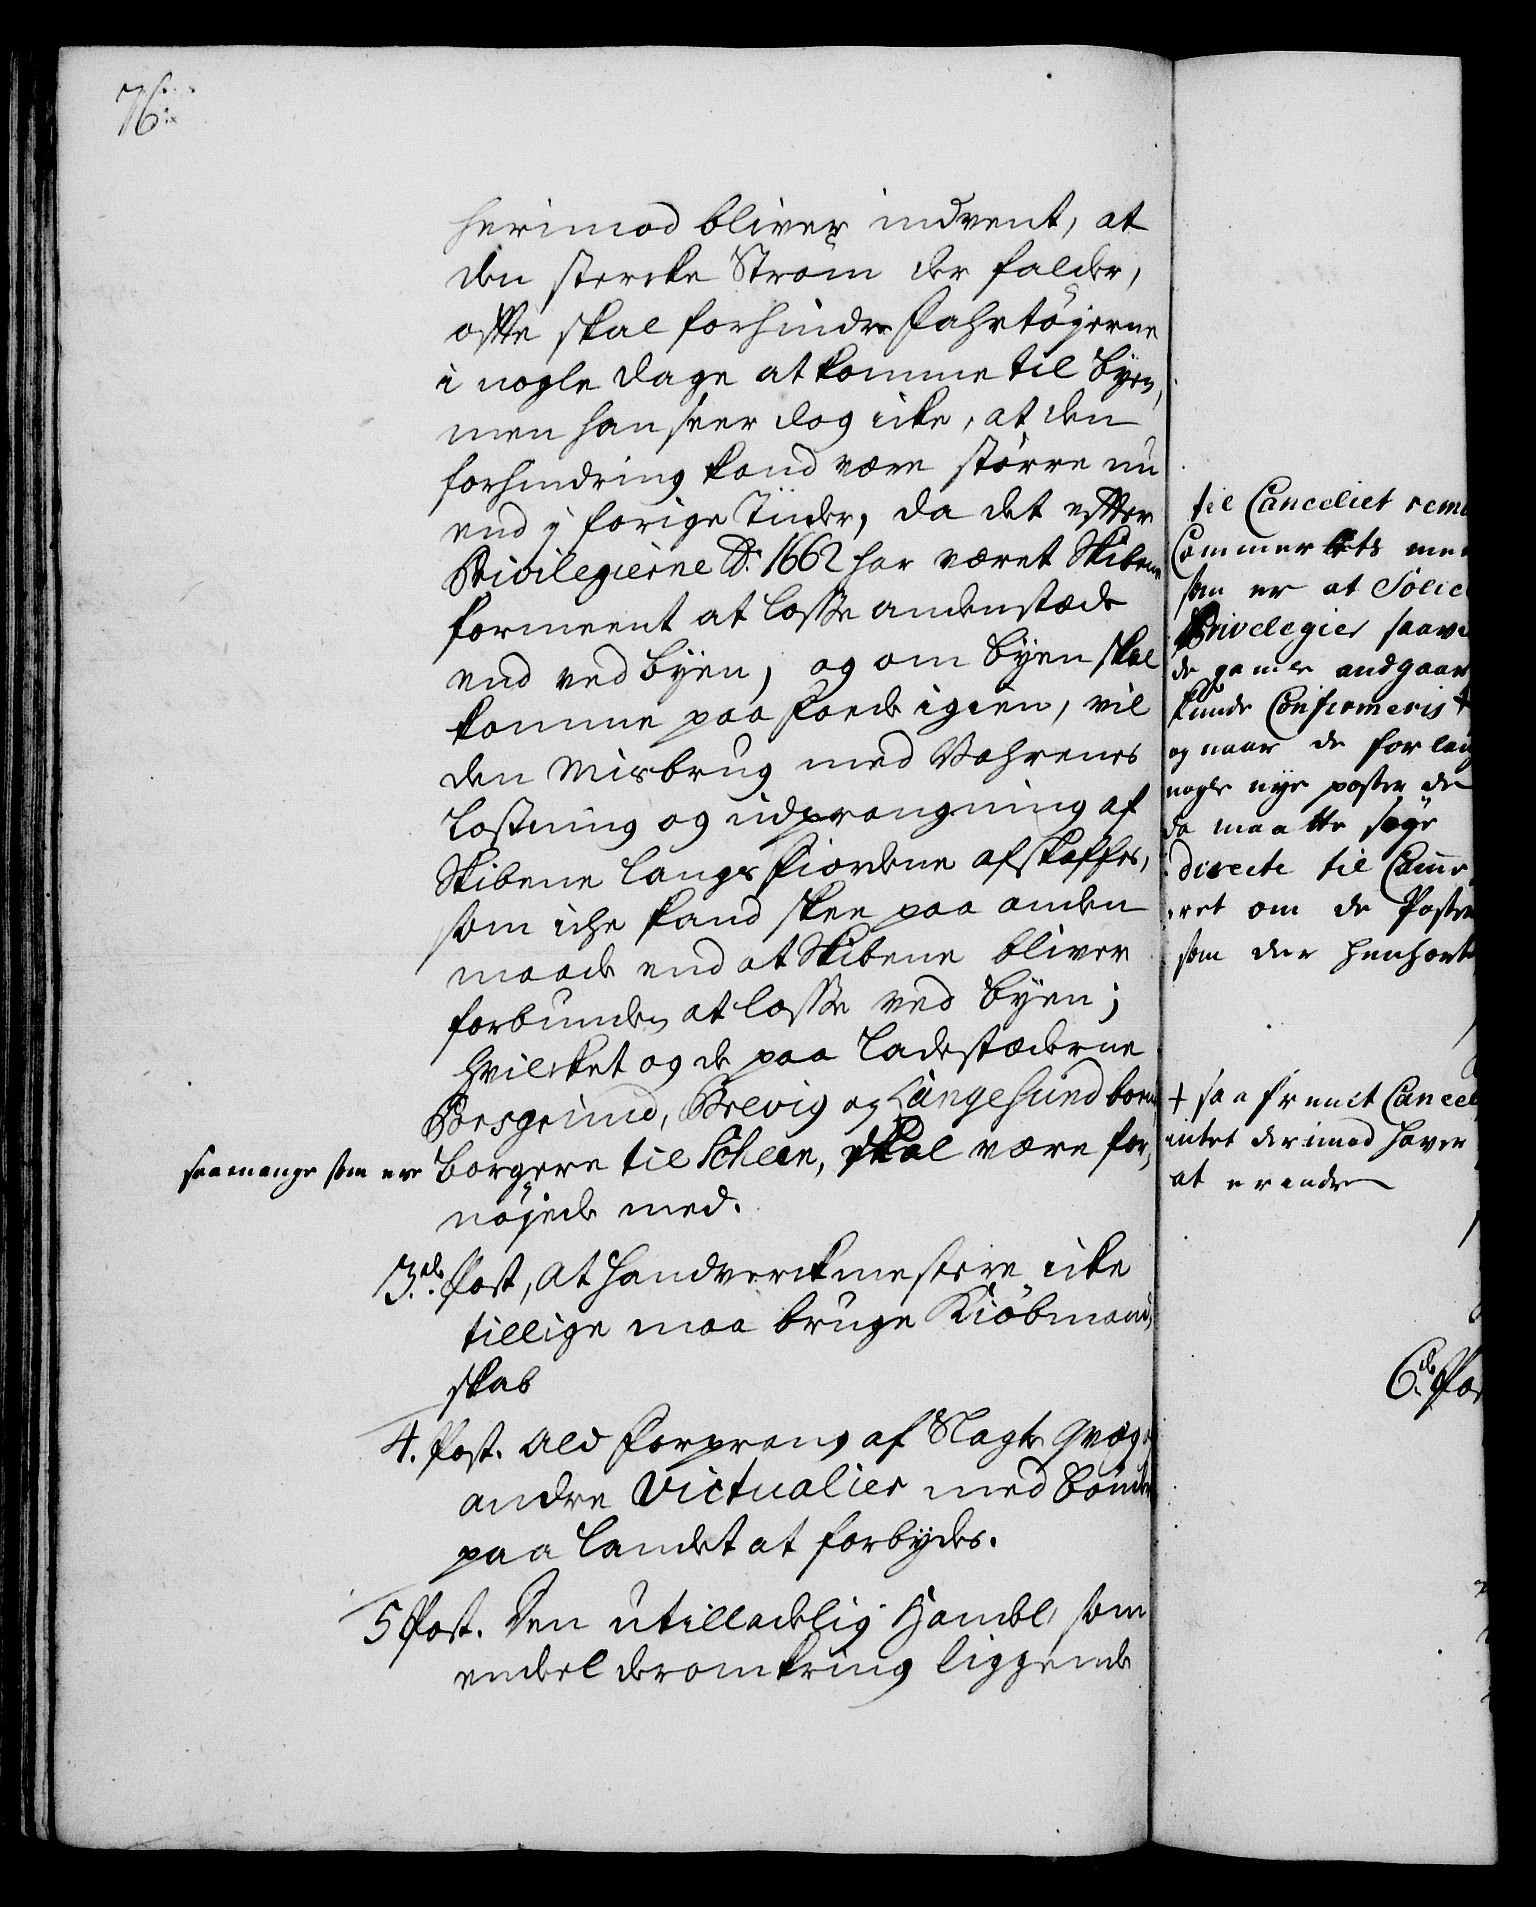 76.
herimod bliver indvent, at
den stercke Ström der falder,
offte skal forhindre Fahrtöyerne
i nogle dage at komme til Byen,
men han seer dog icke, at den
forhindring kand være större nu
end i forige Tiider, da det effter
Privilegierne Ao. 1662 har været Skibene
formeent at losse andenstæds
end ved Byen, og om Byen skal
komme paa Foede igien, vil
den Misbrug med Vahrenes
Lostning og udprangning af
Skibene langs Fiordene afskaffes,
som iche kand skee paa anden
maade end at Skibene bliver
forbunden at losse ved Byen;
hvilcket og de paa Ladestæderne
Porsgrund, Brevig og Langesund boende
saamange som ere Borgere til Scheen, skal være for,
nöyede med.
3de. Post, At Handverckmestere icke
tillige maa bruge Kiöbmand,
skab
4. Post. Ald Forprang af Slagte Qvæg
andre Victualier med Bönder
paa Landet at forbydes.
5 Post. Den utilladelig Handel, som
endeel deromkring liggende
til Canceliet
Commer
som er at
Privilegier
de gamle andgaar
kunde Confirmeris +
og naar de
nogle nye poster
da maatte söge
directe til
om de Poster
som der
+ saa fremt
intet derimod haver
at erindre
6te. Pos